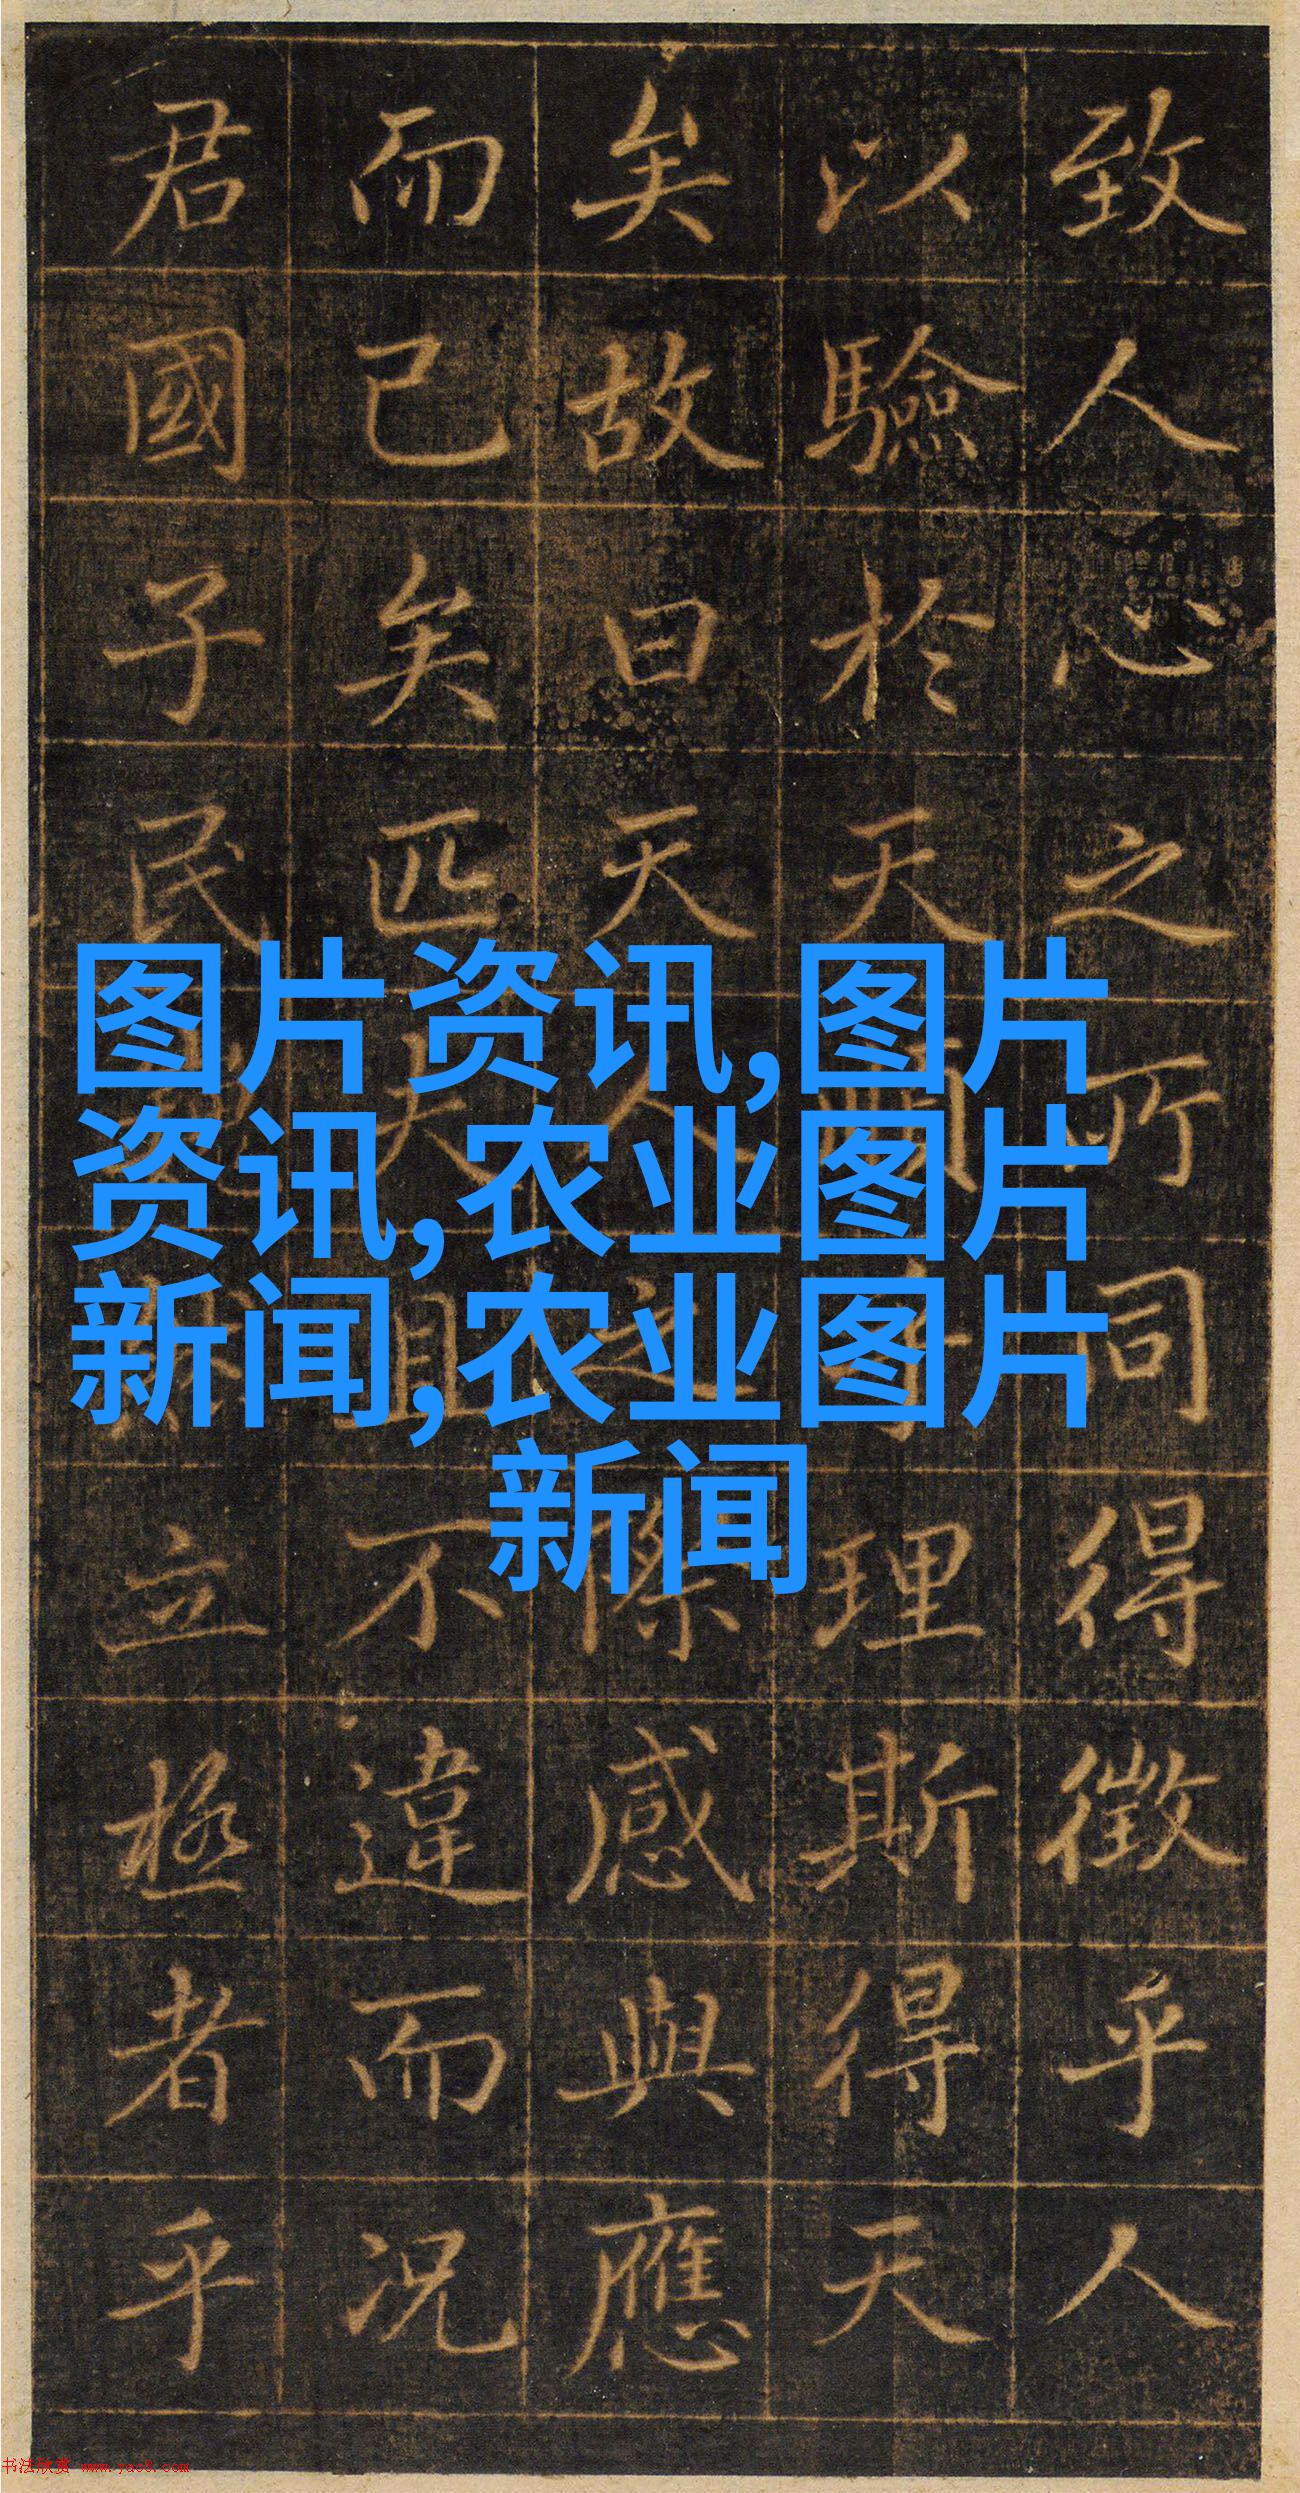 致人心之所同得徵乎人
以驗於天理斯得天
矣故曰天人之際感與應
而已矣匹夫且不違而況
君國子民立極者乎
图片资讯,图片
资讯,农业图片
新闻,农业图片
新闻
书法欣赏 www.yac8.com